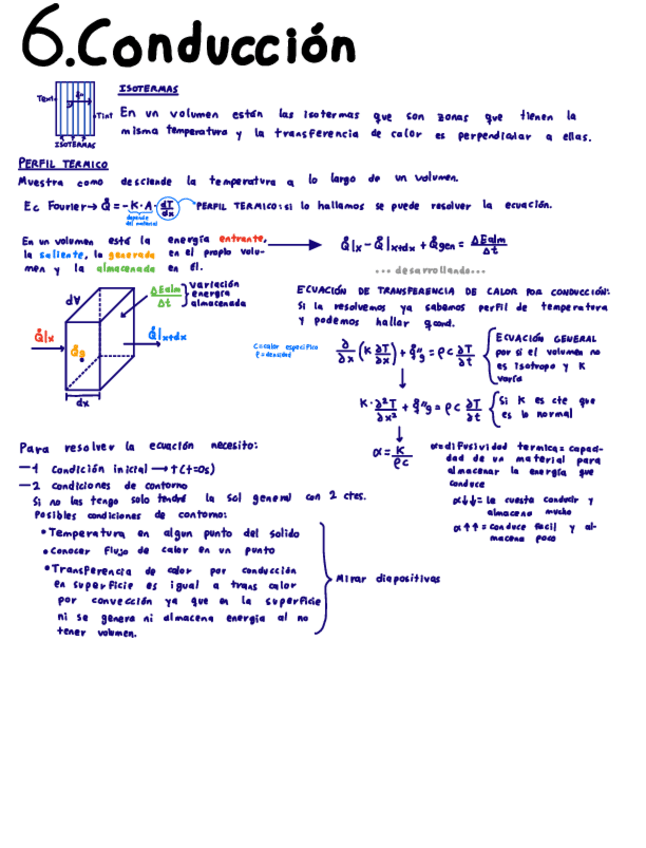 6. Conducción
Text
Tint
ISOTERMAS
ISOTERMAS
En un volumen están las isotermas que son zonas que tienen la
misma temperatura y la transferencia de calor es perpendicular a ellas.
PERFIL TERMICO
Muestra como desciende la temperatura a lo largo de un volumen.
Ec Fourier → Q̇ = -K·A·dT/dx
depende
del material
PERFIL TERMICO: si lo hallamos se puede resolver la ecuación.
En un volumen está la energía entrante,
la saliente, la generada en el propio volu-
men y la almacenada en él.
Q̇|x - Q̇|x+dx + Q̇gen = ΔEalm/Δt
... desarrollando...
dV
ΔEalm/Δt
variación
energía
almacenada
Q̇|x
Q̇g
Q̇|x+dx
dx
ECUACIÓN DE TRANSFERENCIA DE CALOR POR CONDUCCIÓN:
Si la resolvemos ya sabemos perfil de temperatura
y podemos hallar q̇cond.
C=calor especifico
ρ=densidad
∂/∂x (K ∂T/∂x) + q̇'''g = ρ c ∂T/∂t
ECUACIÓN GENERAL
por si el volumen no
es isotropo y K
varía
K·∂²T/∂x² + q̇'''g = ρ c ∂T/∂t
Si K es cte que
es lo normal
α = K/ρc
α=difusividad termica= capaci-
dad de un material para
almacenar la energía que
conduce
α↓↓= le cuesta conducir y
almacena mucho
α↑↑= conduce facil y al-
macena poco
Para resolver la ecuación necesito:
—1 condición inicial → t(t=0s)
—2 condiciones de contorno
Si no las tengo solo tendré la sol general con 2 ctes.
Posibles condiciones de contorno:
• Temperatura en algun punto del solido
• Conocer flujo de calor en un punto
• Transferencia de calor por conducción
en superficie es igual a trans calor
por convección ya que en la superficie
ni se genera ni almacena energía al no
tener volumen.
Mirar diapositivas